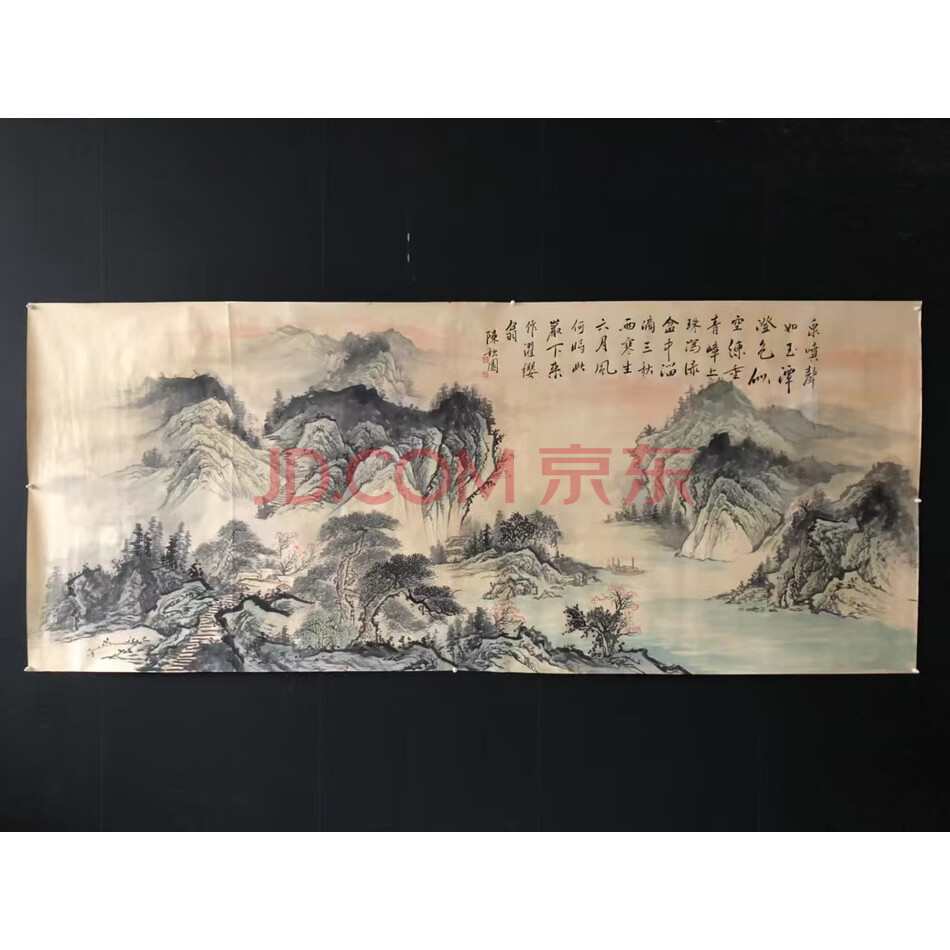 泉噴聲
如玉潭
澄色似
空練垂
青嶂上
珠瀉綠
盆中溜
滴三秋
雨寒生
六月風
何時此
巖下來
作濯纓
翁
陳秋園
JD.COM 京东